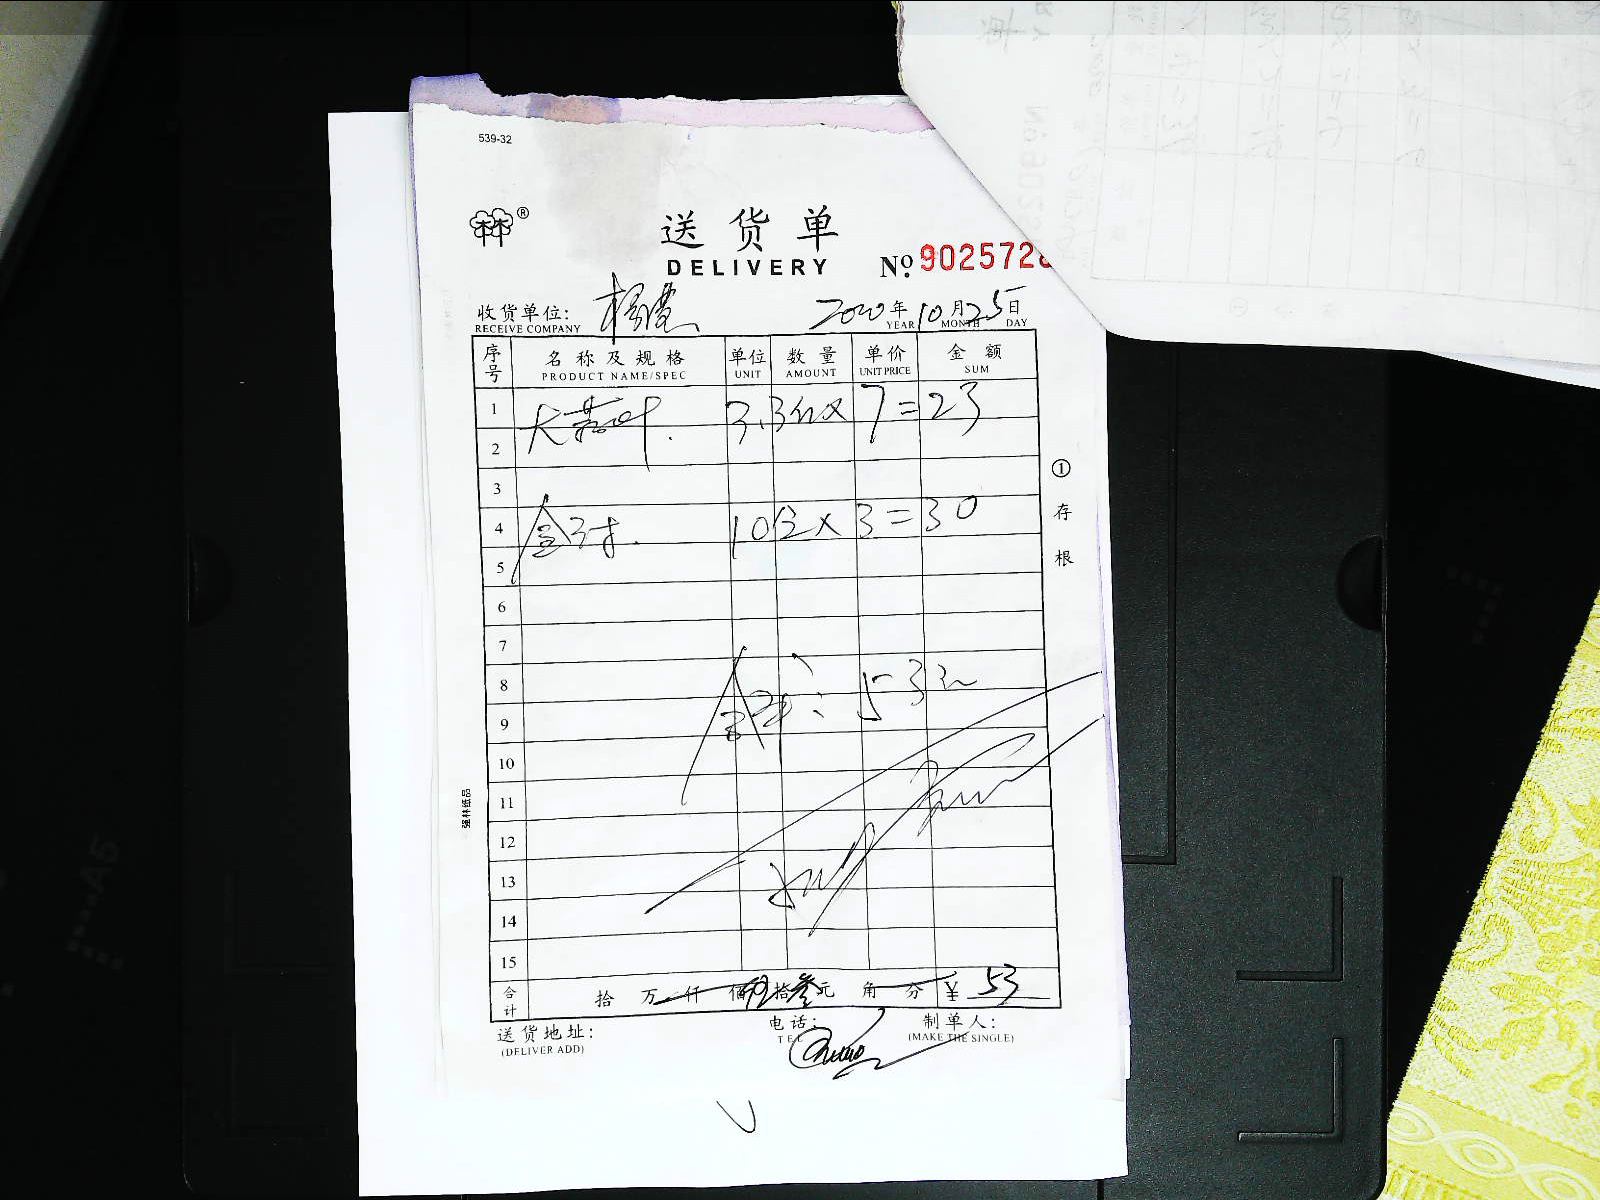 539-32
林®
送货单
DELIVERY
№ 9025728
收货单位:
RECEIVE COMPANY
2020年10月25日
YEAR MONTH DAY
序号 名称及规格 单位 数量 单价 金额
PRODUCT NAME/SPEC UNIT AMOUNT UNIT PRICE SUM
1 3.3 × 7=23
2
3
4 10 × 3=30
5
6
7
8 53元
9
10
11
12
13
14
15
合计 拾 万 仟 佰 伍拾叁元 角 分 ¥ 53
送货地址: 电话: 制单人:
(DELIVER ADD) TEL (MAKE THE SINGLE)
①存根
强林纸品